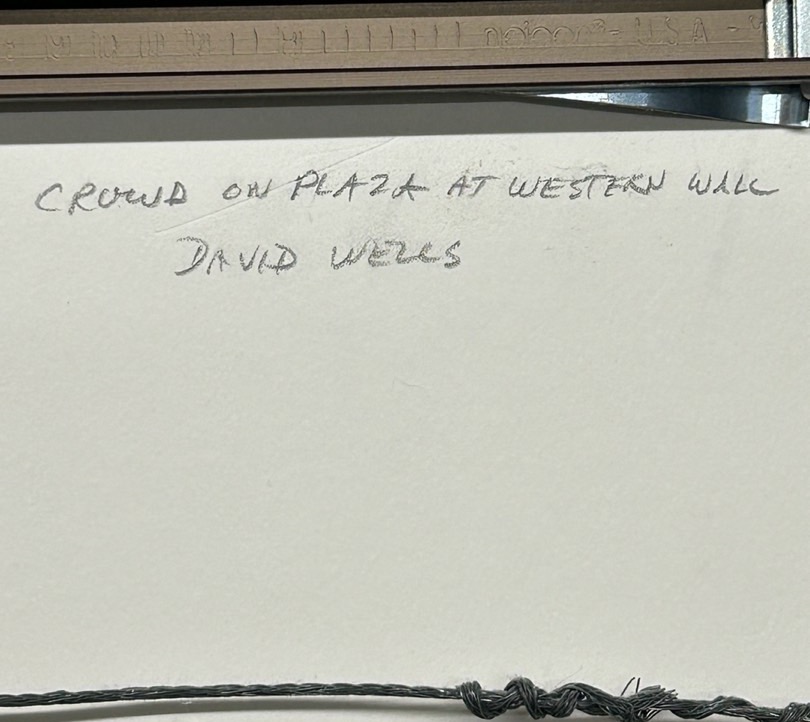 nielsen®- USA -
CROWD ON PLAZA AT WESTERN WALL
DAVID WELLS